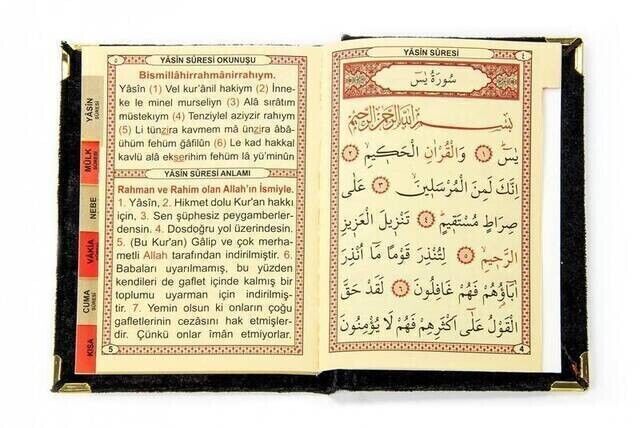 ٥
YÂSİN SÛRESİ OKUNUŞU
Bismillâhirrahmânirrahıym.
Yâsîn (1) Vel kur'ânil hakiym (2) İnne-
ke le minel murseliyn (3) Alâ sırâtım
müstekıym (4) Tenziylel aziyzir rahıym
(5) Li tünzira kavmem mâ ünzira âbâ-
ühüm fehüm ğâfilûn (6) Le kad hakkal
kavlü alâ ekserihim fehüm lâ yü'minûn
YÂSİN SÛRESİ ANLAMI
Rahman ve Rahim olan Allah'ın İsmiyle.
1. Yâsîn, 2. Hikmet dolu Kur'an hakkı
için, 3. Sen şüphesiz peygamberler-
densin. 4. Dosdoğru yol üzerindesin.
5. (Bu Kur'an) Gâlip ve çok merha-
metli Allah tarafından indirilmiştir. 6.
Babaları uyarılmamış, bu yüzden
kendileri de gaflet içinde kalmış bir
toplumu uyarman için indirilmiş-
tir. 7. Yemin olsun ki onların çoğu
gafletlerinin cezasını hak etmişler-
dir. Çünkü onlar îmân etmiyorlar.
5
YÂSİN
SÛRESİ
MÜLK
SÛRESİ
NEBE
VÂKIA
SÛRESİ
CUMA
SÛRESİ
KISA
YÂSİN SÛRESİ
٤
سُورَةُ يٰسٓ
بِسْمِ اللّٰهِ الرَّحْمٰنِ الرَّحِيمِ
يٰسٓ ﴿١﴾ وَالْقُرْاٰنِ الْحَكِيمِ ﴿٢﴾
اِنَّكَ لَمِنَ الْمُرْسَلِينَ ﴿٣﴾ عَلٰى
صِرَاطٍ مُسْتَقِيمٍ ﴿٤﴾ تَنْزِيلَ الْعَزِيزِ
الرَّحِيمِ ﴿٥﴾ لِتُنْذِرَ قَوْمًا مَٓا اُنْذِرَ
اٰبَٓاؤُهُمْ فَهُمْ غَافِلُونَ ﴿٦﴾ لَقَدْ حَقَّ
الْقَوْلُ عَلٰٓى اَكْثَرِهِمْ فَهُمْ لَا يُؤْمِنُونَ
4